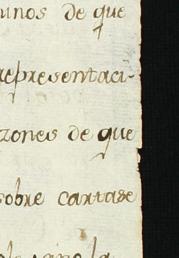 minos de que
representaci-
zones de que
sobre cartase